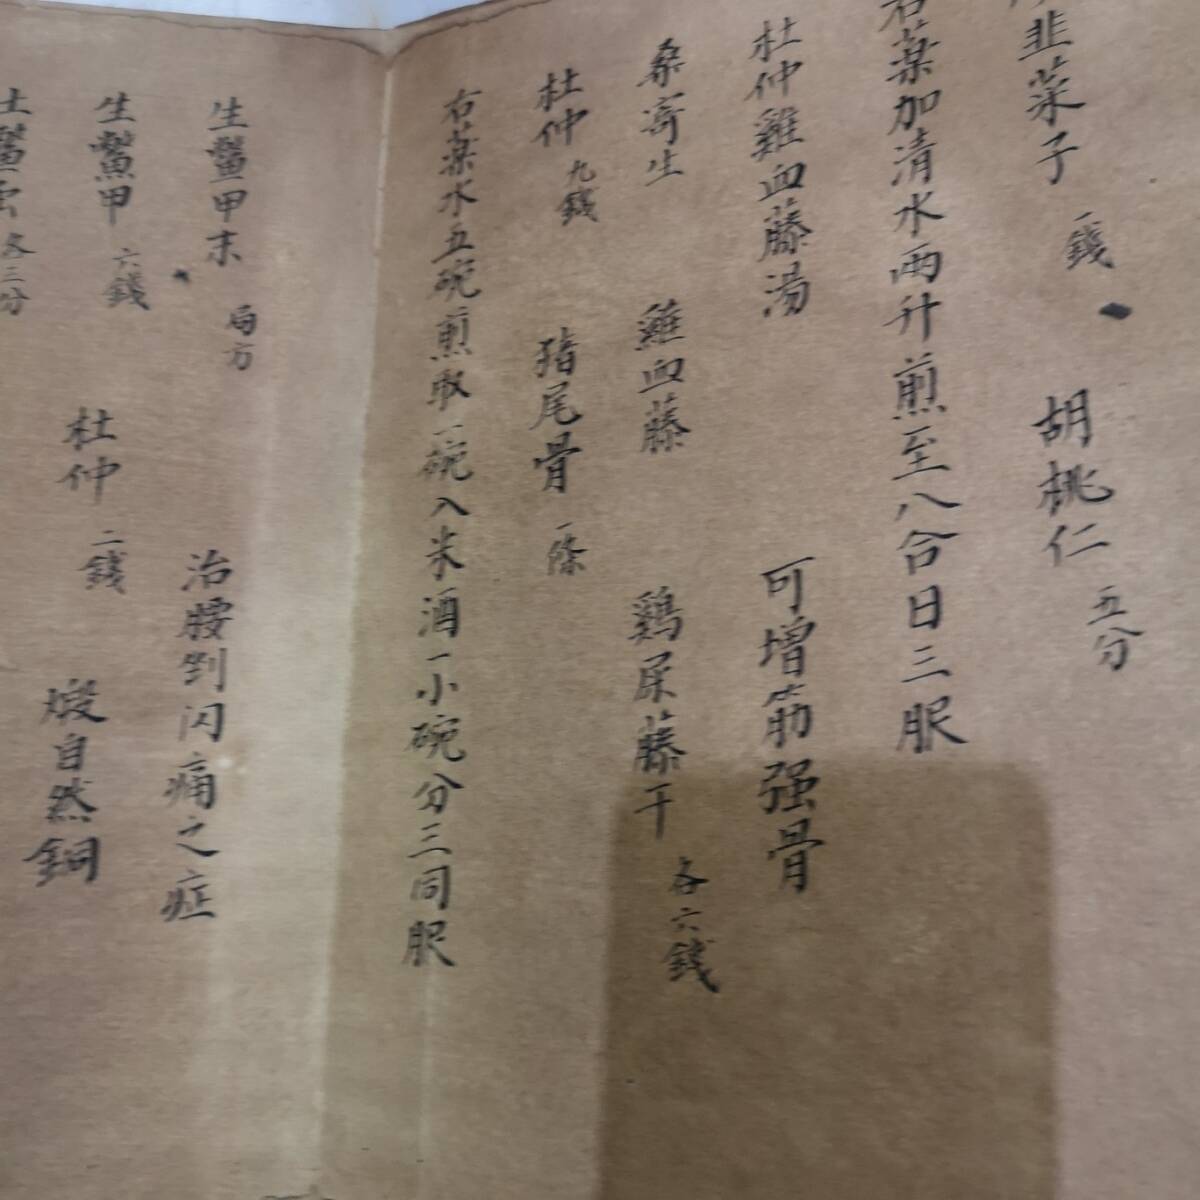 韭菜子 一錢 胡桃仁 五分
右藥加清水兩升煎至八合日三服
杜仲雞血藤湯 可增筋强骨
桑寄生 雞血藤 鷄屎藤干 各六錢
杜仲 九錢 豬尾骨 一條
右藥水五碗煎取一碗入米酒一小碗分三同服
生鱉甲末 局方 治腰剉闪痛之症
生鱉甲 六錢 杜仲 二錢 煅自然銅
土鱉虫 各三分